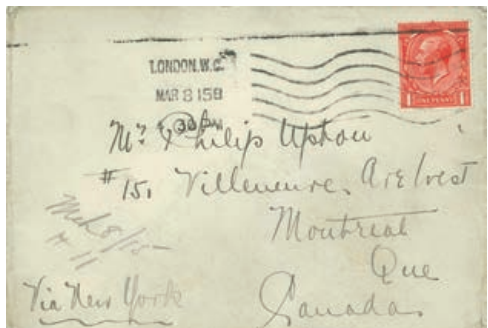 LONDON.W.C.
MAR 8 15
Mr. Philip Uptou
#151 Villeneuve. Ave West
Montreal
Que
Canada
Mch 8/15
# 11
Via New York
1 1